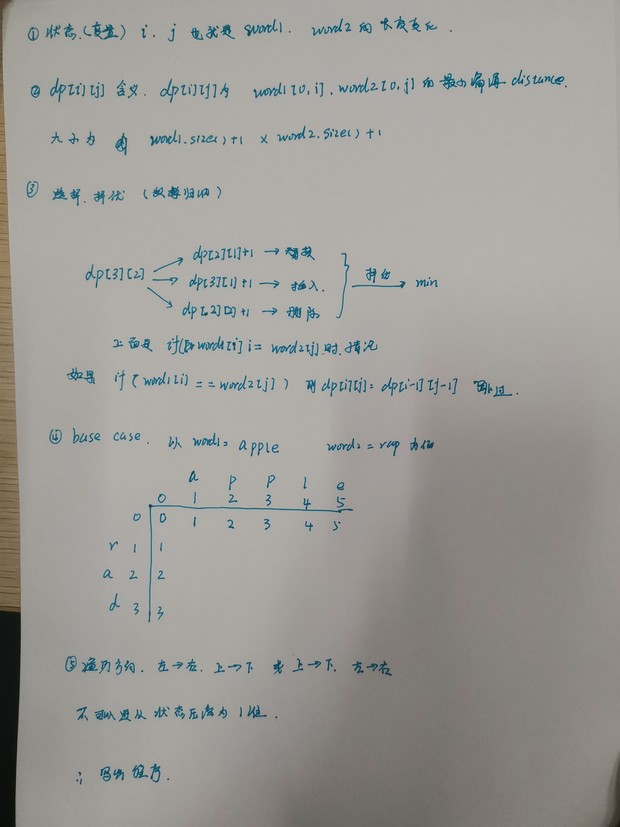 ① 状态(变量) i, j 也就是 word1, word2 的长度变化.
② dp[i][j] 含义, dp[i][j]为 word1[0,i], word2[0,j] 的最小编辑 distance.
大小为 word1.size()+1 × word2.size()+1
③ 选择, 择优 (数学归纳)
dp[2][1]+1 → 替换
dp[3][2] dp[3][1]+1 → 插入. 择优 → min
dp[2][2]+1 → 删除
上面是 if(word1[i] != word2[j]) 时, 情况
如果 if (word1[i] == word2[j]) 则 dp[i][j] = dp[i-1][j-1] 跳过.
④ base case. 以 word1 = apple word2 = rap 为例
a p p l e
0 1 2 3 4 5
0 0 1 2 3 4 5
r 1 1
a 2 2
d 3 3
⑤ 遍历方向. 左→右, 上→下 或 上→下, 左→右
不可以 状态压缩为 1维.
∴ 写出程序.